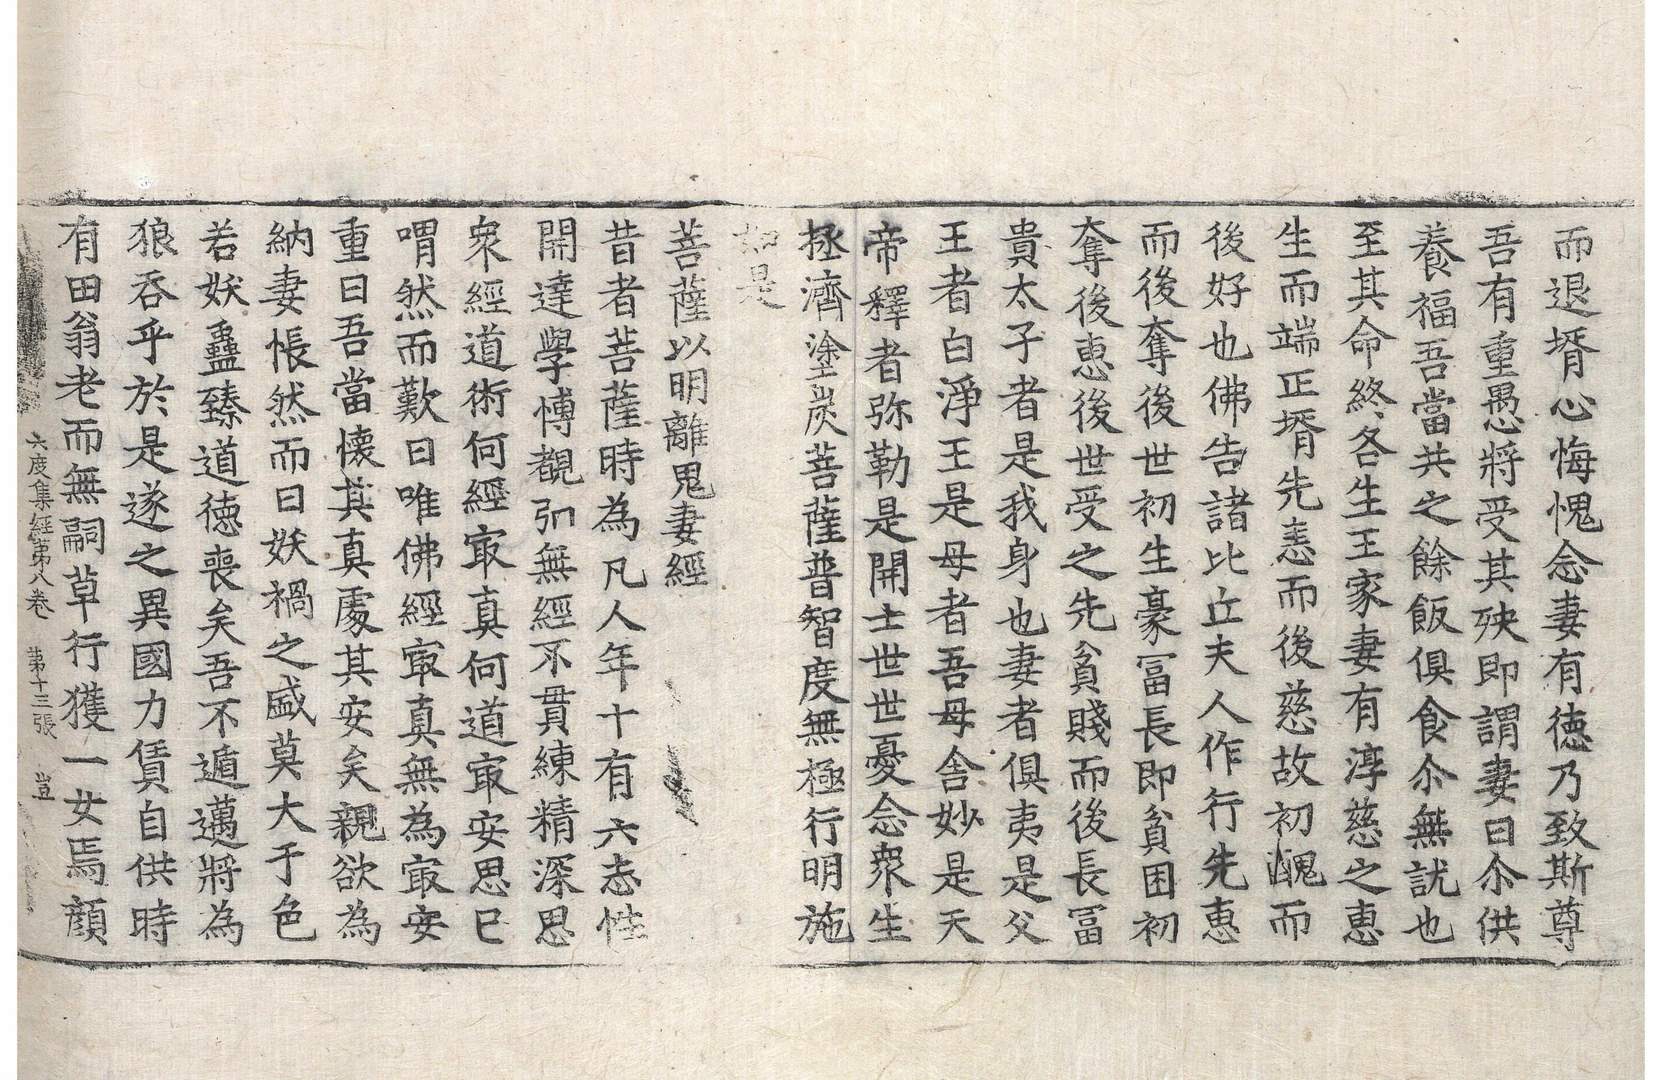 而退壻心悔愧念妻有德乃致斯尊
吾有重愚將受其殃即謂妻曰尒供
養福吾當共之餘飯俱食尒無訧也
至其命終各生王家妻有淳慈之惠
生而端正壻先恚而後慈故初醜而
後好也佛告諸比丘夫人作行先惠
而後奪後世初生豪冨長即貧困初
奪後惠後世受之先貧賤而後長冨
貴太子者是我身也妻者俱夷是父
王者白淨王是母者吾母舎妙是天
帝釋者弥勒是開士世世憂念衆生
拯濟塗炭菩薩普智度無極行明施
如是
菩薩以明離鬼妻經
昔者菩薩時為凡人年十有六志性
開達學博覩弘無經不貫練精深思
衆經道術何經㝡真何道㝡安思已
喟然而歎曰唯佛經㝡真無為㝡安
重曰吾當懷其真處其安矣親欲為
納妻悵然而曰妖禍之盛莫大于色
若妖蠱臻道德喪矣吾不遁邁將為
狼吞乎於是遂之異國力賃自供時
有田翁老而無嗣草行獲一女焉顔
六度集經第八卷 第十三張 豈